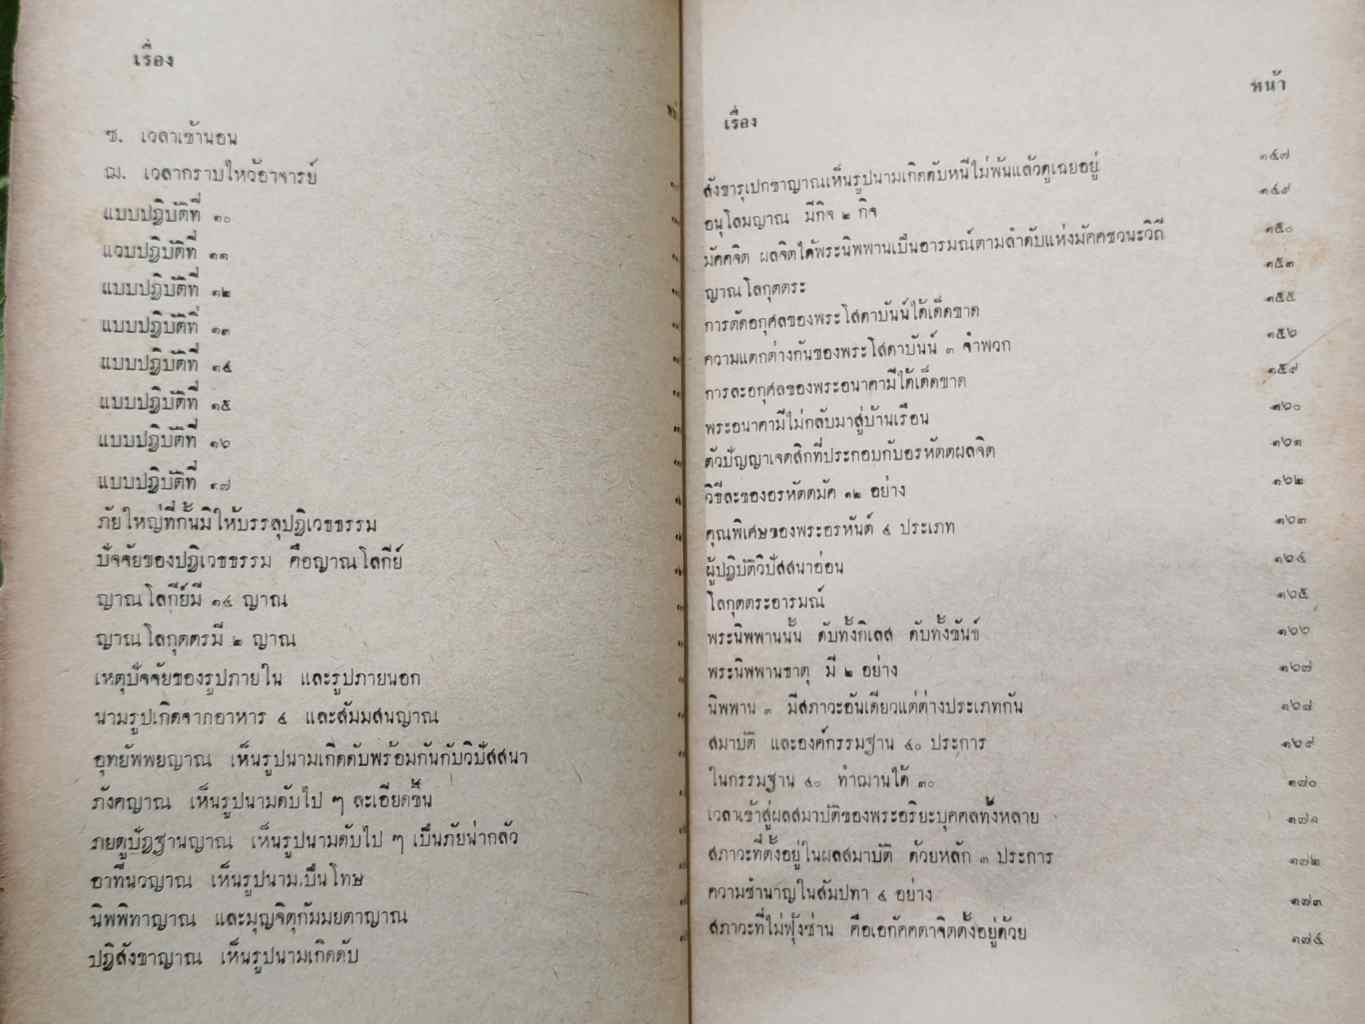 เรื่อง
ซ. เวลาเข้านอน
ฌ. เวลากราบไหว้อาจารย์
แบบปฏิบัติที่ ๑๐
แบบปฏิบัติที่ ๑๑
แบบปฏิบัติที่ ๑๒
แบบปฏิบัติที่ ๑๓
แบบปฏิบัติที่ ๑๔
แบบปฏิบัติที่ ๑๕
แบบปฏิบัติที่ ๑๖
แบบปฏิบัติที่ ๑๗
ภัยใหญ่ที่กั้นมิให้บรรลุปฏิเวธธรรม
ปัจจัยของปฏิเวธธรรม คือญาณโลกีย์
ญาณโลกีย์มี ๑๔ ญาณ
ญาณโลกุตตรมี ๒ ญาณ
เหตุปัจจัยของรูปภายใน และรูปภายนอก
นามรูปเกิดจากอาหาร ๔ และสัมมสนญาณ
อุทยัพพยญาณ เห็นรูปนามเกิดดับพร้อมกันกับวิปัสสนา
ภังคญาณ เห็นรูปนามดับไป ๆ ละเอียดขึ้น
ภยตูปัฏฐานญาณ เห็นรูปนามดับไป ๆ เป็นภัยน่ากลัว
อาทีนวญาณ เห็นรูปนามเป็นโทษ
นิพพิทาญาณ และมุญจิตุกัมมยตาญาณ
ปฏิสังขาญาณ เห็นรูปนามเกิดดับ
เรื่อง หน้า
สังขารุเปกขาญาณเห็นรูปนามเกิดดับหนีไม่พ้นแล้วดูเฉยอยู่ ๑๔๗
อนุโลมญาณ มีกิจ ๒ กิจ ๑๔๙
มัคคจิต ผลจิตได้พระนิพพานเป็นอารมณ์ตามลำดับแห่งมัคคชวนะวิถี ๑๕๐
ญาณโลกุตตระ ๑๕๓
การตัดอกุศลของพระโสดาบันน์ได้เด็ดขาด ๑๕๕
ความแตกต่างกันของพระโสดาบันน์ ๓ จำพวก ๑๕๖
การละอกุศลของพระอนาคามีได้เด็ดขาด ๑๕๙
พระอนาคามีไม่กลับมาสู่บ้านเรือน ๑๖๐
ตัวปัญญาเจตสิกที่ประกอบกับอรหัตตผลจิต ๑๖๑
วิธีละของอรหัตตมัค ๑๒ อย่าง ๑๖๒
คุณพิเศษของพระอรหันต์ ๔ ประเภท ๑๖๓
ผู้ปฏิบัติวิปัสสนาอ่อน ๑๖๔
โลกุตตระอารมณ์ ๑๖๕
พระนิพพานนั้น ดับทั้งกิเลส ดับทั้งขันธ์ ๑๖๖
พระนิพพานธาตุ มี ๒ อย่าง ๑๖๗
นิพพาน ๓ มีสภาวะอันเดียวแต่ต่างประเภทกัน ๑๖๘
สมาบัติ และองค์กรรมฐาน ๔๐ ประการ ๑๖๙
ในกรรมฐาน ๔๐ ทำฌานได้ ๓๐ ๑๗๐
เวลาเข้าสู่ผลสมาบัติของพระอริยะบุคคลทั้งหลาย ๑๗๑
สภาวะที่ตั้งอยู่ในผลสมาบัติ ด้วยหลัก ๓ ประการ ๑๗๒
ความชำนาญในสัมปทา ๔ อย่าง ๑๗๓
สภาวะที่ไม่ฟุ้งซ่าน คือเอกัคคตาจิตตั้งอยู่ด้วย ๑๗๔